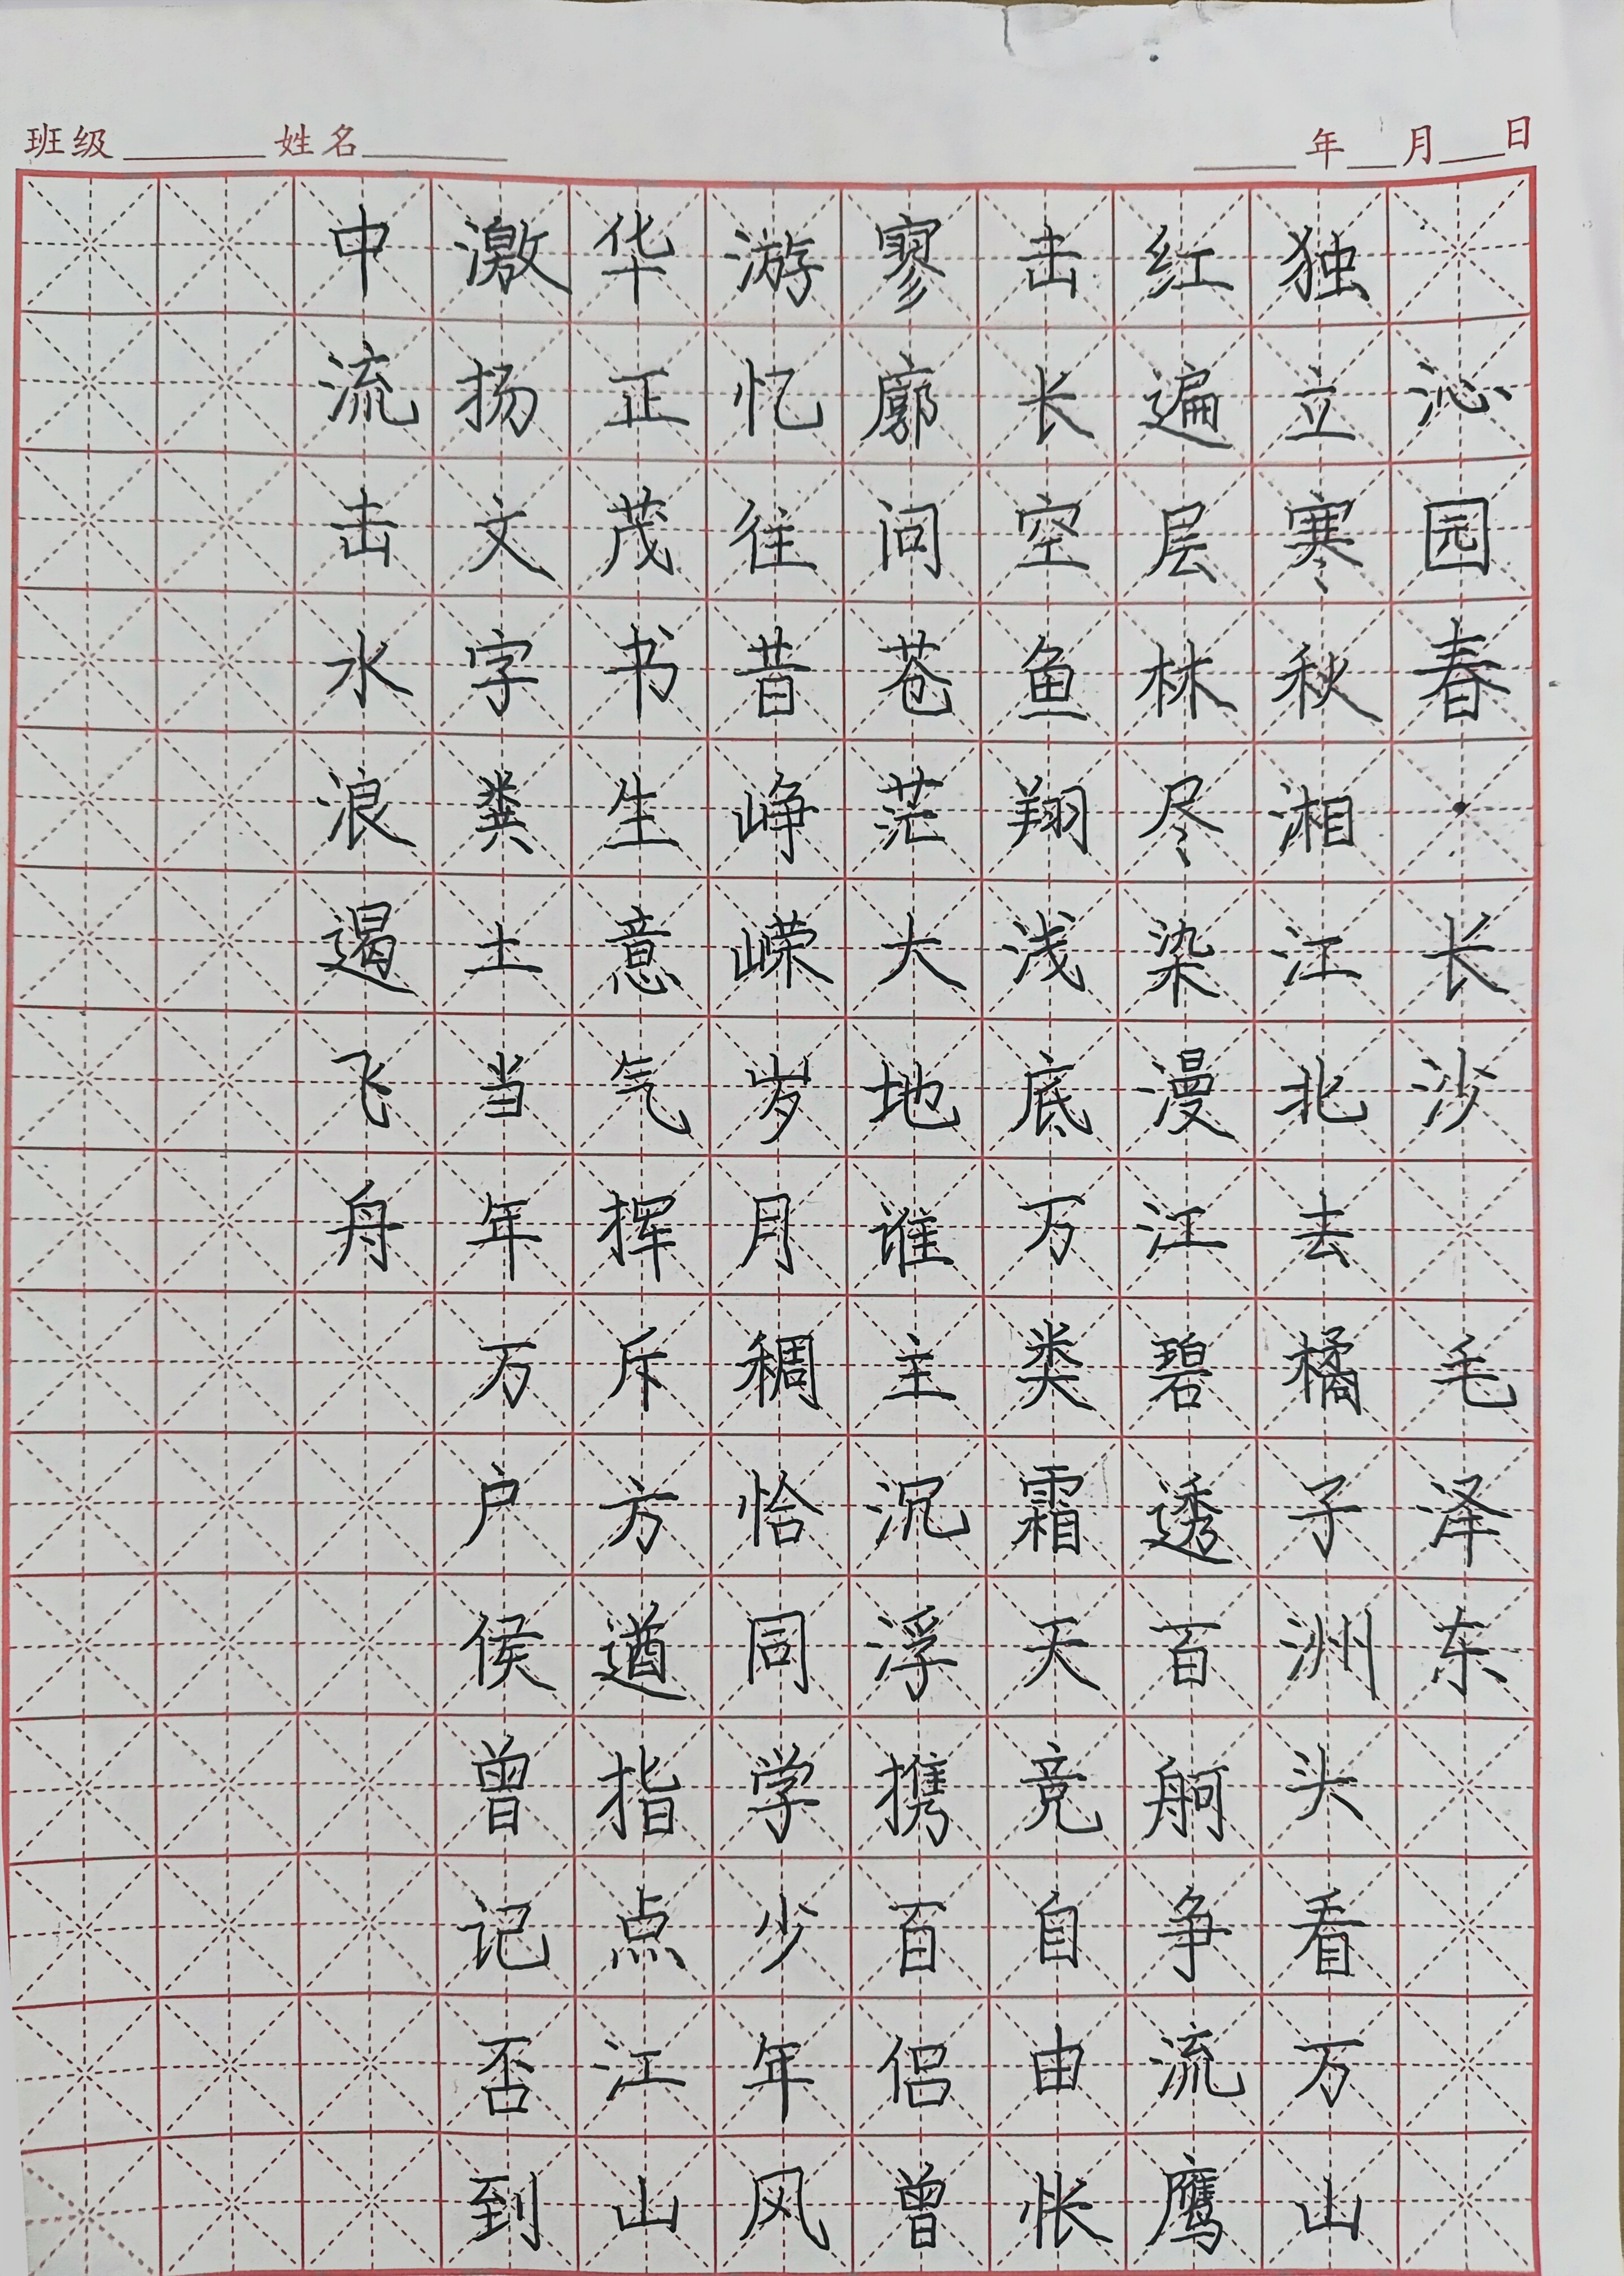 班级 姓名 年 月 日
沁园春·长沙 毛泽东
独立寒秋湘江北去橘子洲头看万山
红遍层林尽染漫江碧透百舸争流鹰
击长空鱼翔浅底万类霜天竞自由怅
寥廓问苍茫大地谁主沉浮携百侣曾
游忆往昔峥嵘岁月稠恰同学少年风
华正茂书生意气挥斥方遒指点江山
激扬文字粪土当年万户侯曾记否到
中流击水浪遏飞舟